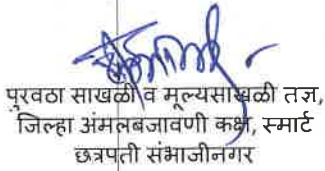 पुरवठा साखळी व मूल्यसाखळी तज्ञ,
जिल्हा अंमलबजावणी कक्ष, स्मार्ट
छत्रपती संभाजीनगर